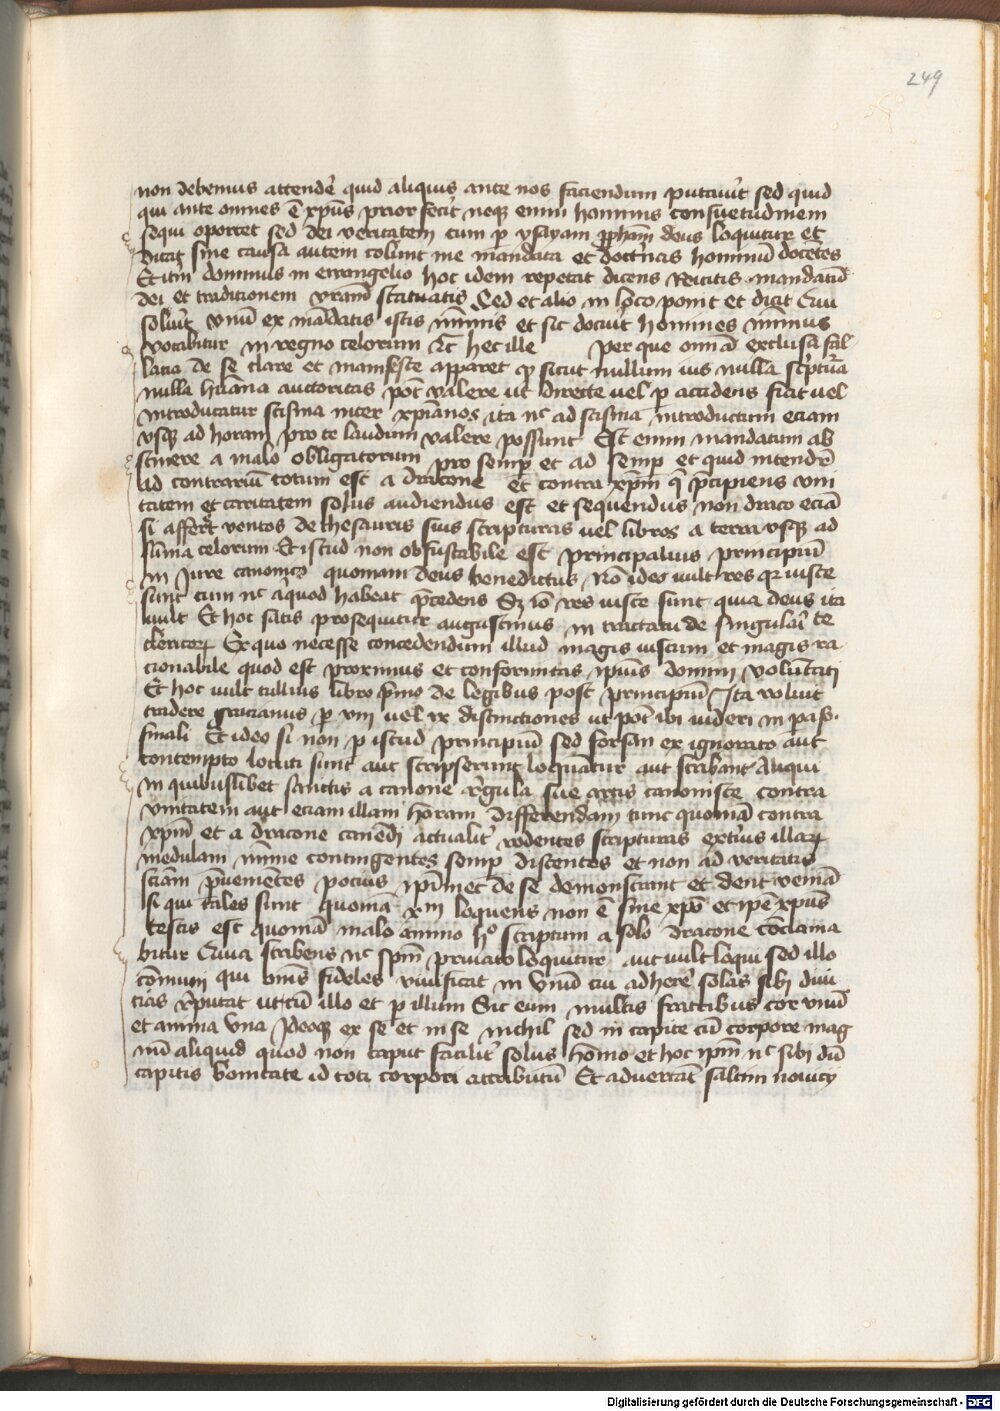 249
non debemus attendē quid aliquis ante nos faciendum putauit̄ sed quid
qui ante omnes ē xp̄us prior fecit̄ neqꝫ enim hominis consuetudinem
sequi oportet sed dei veritatem cum p ysayam ꝓph̄am deus loquitur et
dicat sine causa autem colunt me mandata et doctrīas hominū docētes
Et itm̄ dominus in ewangelio hoc idem repetat dicens Reicitis mandatū
dei et traditionem vr̄am statuatis Sed et alio in loco ponit et dicit Qui
soluit̄ vnū ex mādatis istis mīmis et sic docuit̄ homines mīmus
vocabitur in regno celorum Et̄ hec ille Per que omnē exclusa fal
latia de se clare et manifeste apparet ꝙ sicut nullum ius nulla sc̄ptura
nulla hūana auctoritas pōt valere ut directe vel p accidens ficit vel
introducatur scisma inter xp̄ianos ita nc̄ ad scisma introductum eciam
vsqꝫ ad horam pro te laudum valere possunt Est enim mandatum ab
stinere a malo obligatorum pro semp̄ et ad semp̄ et quid intendrē
ad contrariū totum est a dracone et contra xp̄m q̄ p̄cipiens vni
tatem et caritatem solus audiendus est et sequendus non draco eciā
si affert̄ ventos de thesauris suis scripturas vel libros a terra vsqꝫ ad
sūma celorum Et istud non obfuscabile est principalius principiū
in Jure canonico quoniam deus benedictus Nō ideo vult res qꝛ iuste
sunt cum nc̄ aliquod habeat p̄cedens Sꝫ iō res iuste sunt quia deus ita
wult Et hoc satis prosequitur augustinus in tractatu de singulari te
clericoꝝ Ex quo necesse concedendum illud magis iustum et magis ra
cionabile quod est proximius et conformitas ipsius domini volūtati
Et hoc wult tullius libro p̄mo de legibus post principiū Ita voluit
tradere gracianus p viij vel ix distinctiones ut pōt ibi uideri in pass.
finali Et ideo si non p istud principiū sed forsan ex ignorato aut
contempto locuti sunt aut scripserunt loquātur aut scribant Aliqui
in quibuslibet sanctis a canone r̄gula sue artis canonisce contra
vnitatem aut eciam illam horam differendam tunc quoniā contra
xp̄m et a dracone canendi actualit̄ rodentes scripturas exteriūs illaꝝ
medulam mīme contingentes semp̄ discentes et non ad veritatis
sciam p̄uenientes pocius ip̄imet de se demonstrant et dent veniā
si qui tales sunt quoniā xm̄ loquens non ē sine xp̄o et ip̄e xp̄us
testis est quoniā malo animo hº scriptum a solo dracone cōclama
bitur Quia scribens nc̄ sp̄m priuato loquitur aut vult loqui sed illo
cōmuni qui oīnis fideles viuificat in vnū cui adhere̅ solas sibi diui
cias r̄putat ut cū illo et p illum Sic cum multis fratribus cor vnū
et anima vna Ideoqꝫ ex se et in se nichil sed in capite cū corpore mag
nū aliquid quod non caput facilit̄ solus homo et hoc ip̄m nc̄ sibi dū
capitis bonitate id toti corpori attributū Et aduertāt saltim nouicij
Digitalisierung gefördert durch die Deutsche Forschungsgemeinschaft - DFG